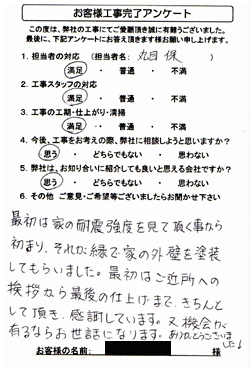 お客様工事完了アンケート
この度は、弊社の工事にてご愛願頂き誠に有難うございました。
最後に、下記アンケートにお答え頂きます様お願い申し上げます。
1. 担当者の対応 (担当者名: 丸目 保 )
満足 ・ 普通 ・ 不満
2. 工事スタッフの対応
満足 ・ 普通 ・ 不満
3. 工事の工期・仕上がり・清掃
満足 ・ 普通 ・ 不満
4. 今後、工事をお考えの際、弊社に相談しようと思いますか?
思う ・ どちらでもない ・ 思わない
5. 弊社は、お知り合いに紹介しても良いと思える会社ですか?
思う ・ どちらでもない ・ 思わない
6. その他 ご意見・ご希望等ございましたらお聞かせ下さい
最初は家の耐震強度を見て頂く事から
初まり、それが縁で家の外壁を塗装
してもらいました。最初はご近所への
挨拶から最後の仕上げまで、きちんと
して頂き、感謝しています。又機会が
有るならお世話になります。ありがとうございま
した!
お客様の名前: 様